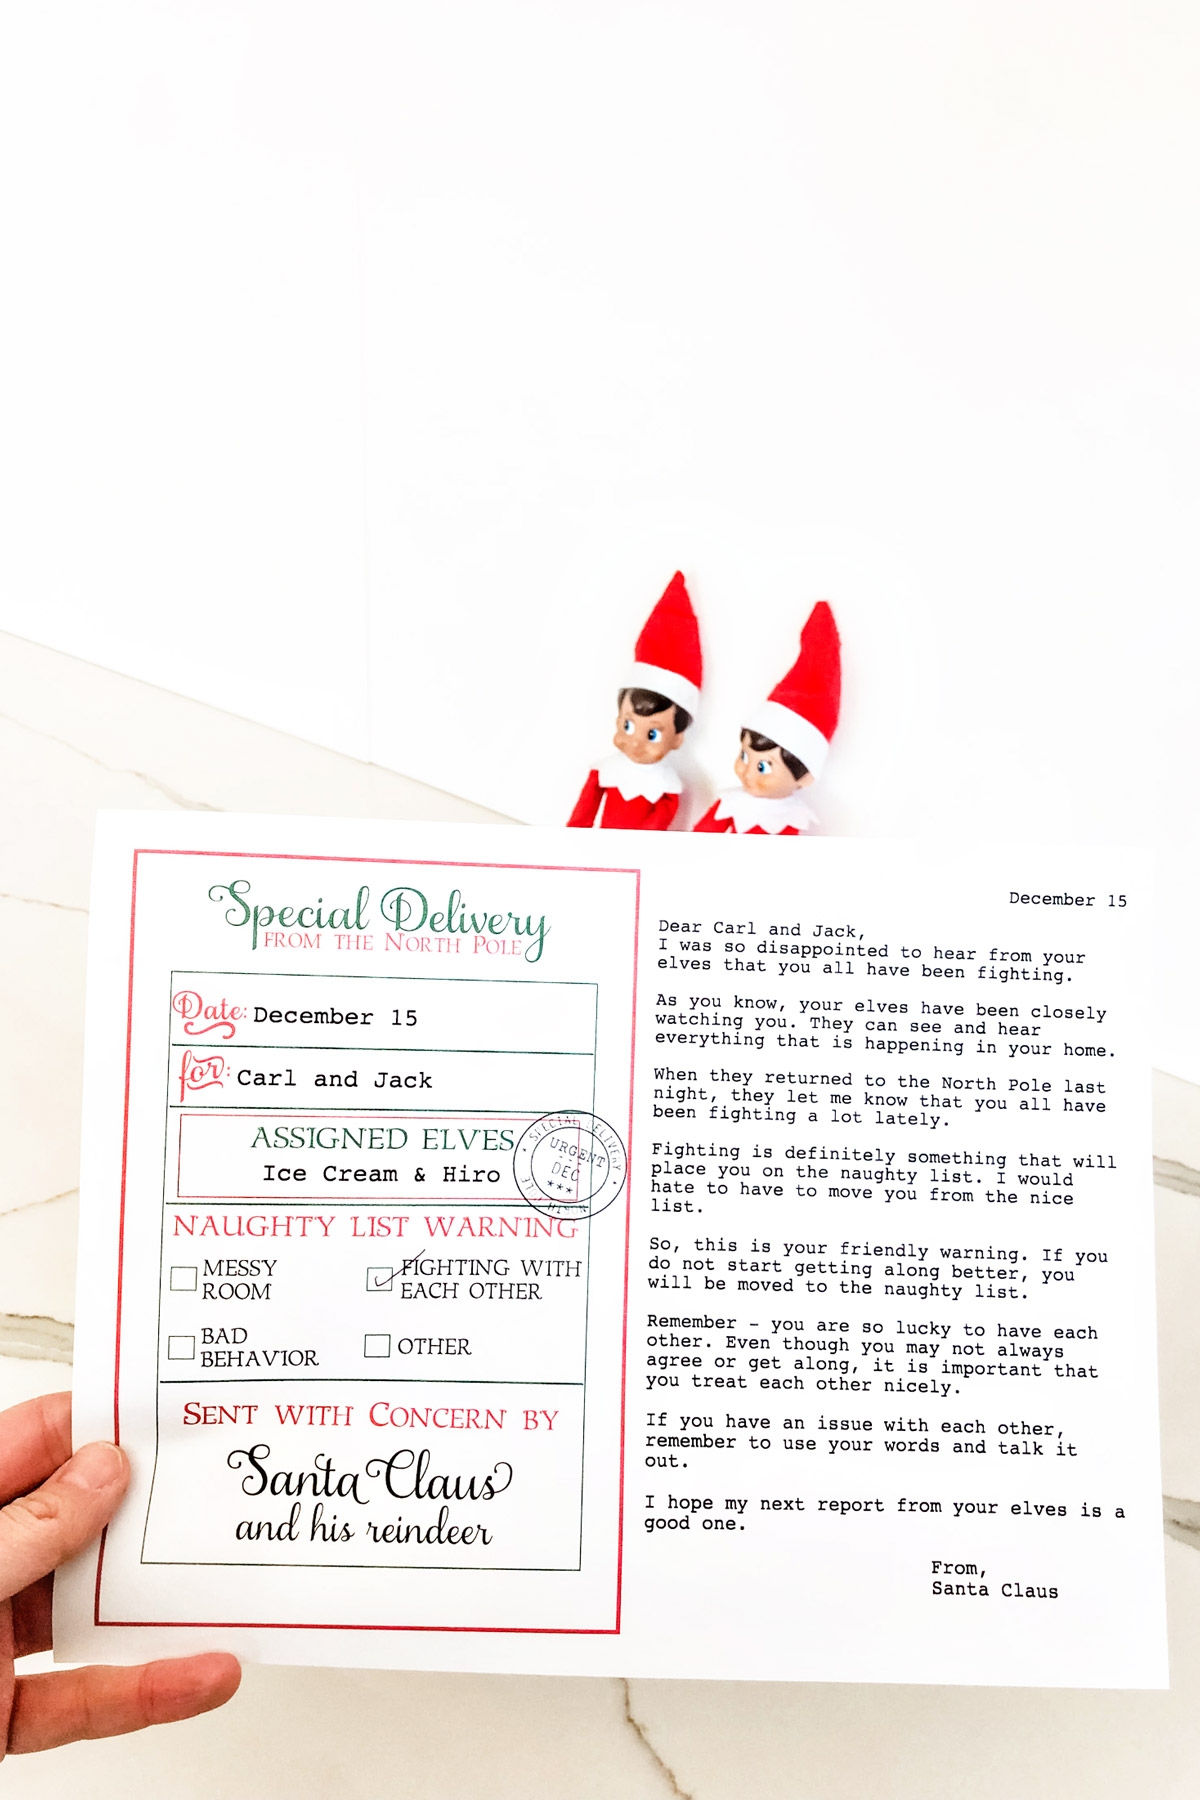 Special Delivery
FROM THE NORTH POLE
Date: December 15
for: Carl and Jack
ASSIGNED ELVES
Ice Cream & Hiro
SPECIAL DELIVERY
URGENT
DEC
***
NORTH
NAUGHTY LIST WARNING
MESSY
ROOM
FIGHTING WITH
EACH OTHER
BAD
BEHAVIOR
OTHER
SENT WITH CONCERN BY
Santa Claus
and his reindeer
December 15
Dear Carl and Jack,
I was so disappointed to hear from your
elves that you all have been fighting.
As you know, your elves have been closely
watching you. They can see and hear
everything that is happening in your home.
When they returned to the North Pole last
night, they let me know that you all have
been fighting a lot lately.
Fighting is definitely something that will
place you on the naughty list. I would
hate to have to move you from the nice
list.
So, this is your friendly warning. If you
do not start getting along better, you
will be moved to the naughty list.
Remember - you are so lucky to have each
other. Even though you may not always
agree or get along, it is important that
you treat each other nicely.
If you have an issue with each other,
remember to use your words and talk it
out.
I hope my next report from your elves is a
good one.
From,
Santa Claus